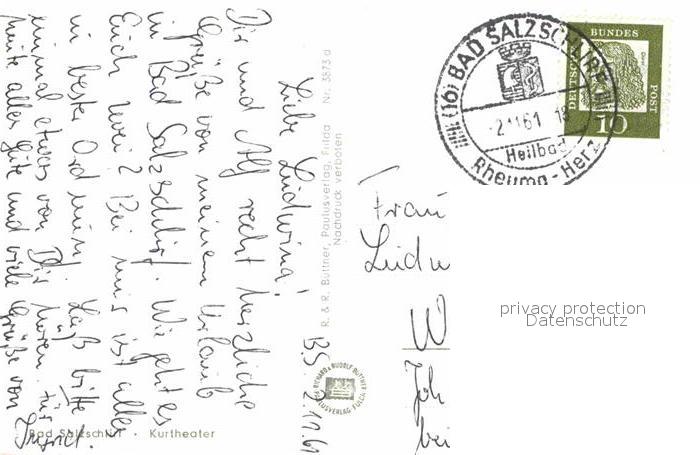 B.S. 2.11.61
Liebe Ludwina!
Dir und Alf recht herzliche
Grüße von meinem Urlaub
in Bad Salzschlirf. Wie geht es
Euch zwei? Bei mir ist alles
in bester Ordnung. Laß bitte
einmal etwas von Dir hören. Für
heute alles Gute und viele Grüße von
Bad Salzschlirf · Kurtheater
R. & R. Büttner, Paulusverlag, Fulda Nr. 3873 d
Nachdruck verboten
RICHARD & RUDOLF BÜTTNER
PAULUSVERLAG FULDA
(16) BAD SALZSCHLIRF
-2.11.61 18
Heilbad
Rheuma - Herz
DEUTSCHE
BUNDES
POST
10
Frau
Ludw
W
Joh
bei
privacy protection
Datenschutz